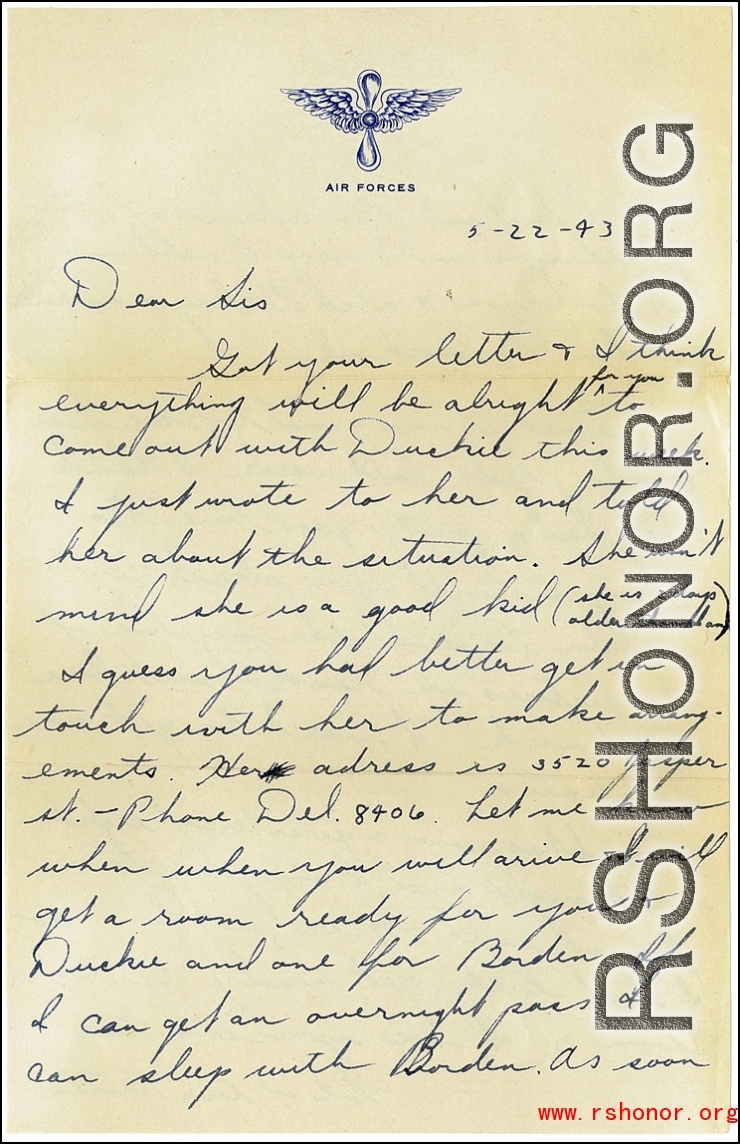 AIR FORCES
5-22-43
Dear Sis
Got your letter & I think
for you
everything will be alright ^ to
come out with Duckie this week.
I just wrote to her and told
her about the situation. She won't
mind she is a good kid (she is days
older than
I guess you had better get in
touch with her to make arrang-
ements. Her adress is 3520 Jasper
st. - Phone Del. 8406. Let me know
when when you will arive & I will
get a room ready for you &
Duckie and one for Borden. If
I can get an overnight pass I
can sleep with Borden. As soon
RSHONOR.ORG
www.rshonor.org